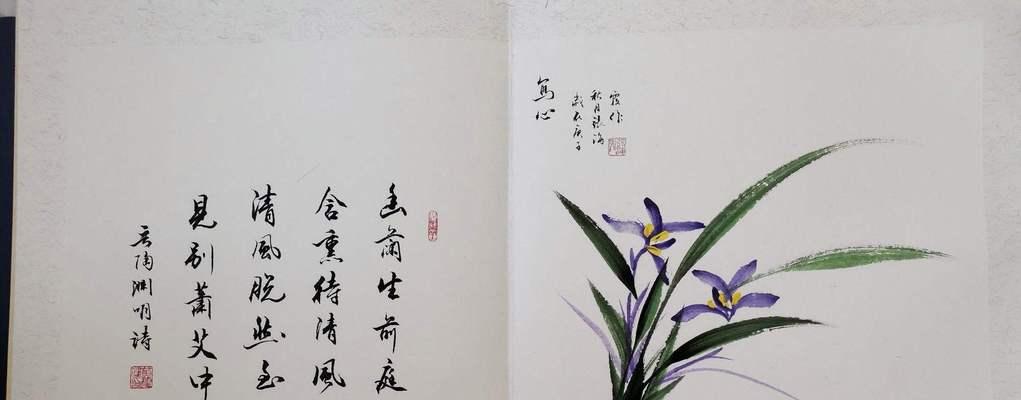 幽蘭生前庭
含熏待清風
清風脱然至
見別蕭艾中
陶渊明詩
寫心
歲在庚子
秋月張海
霞作